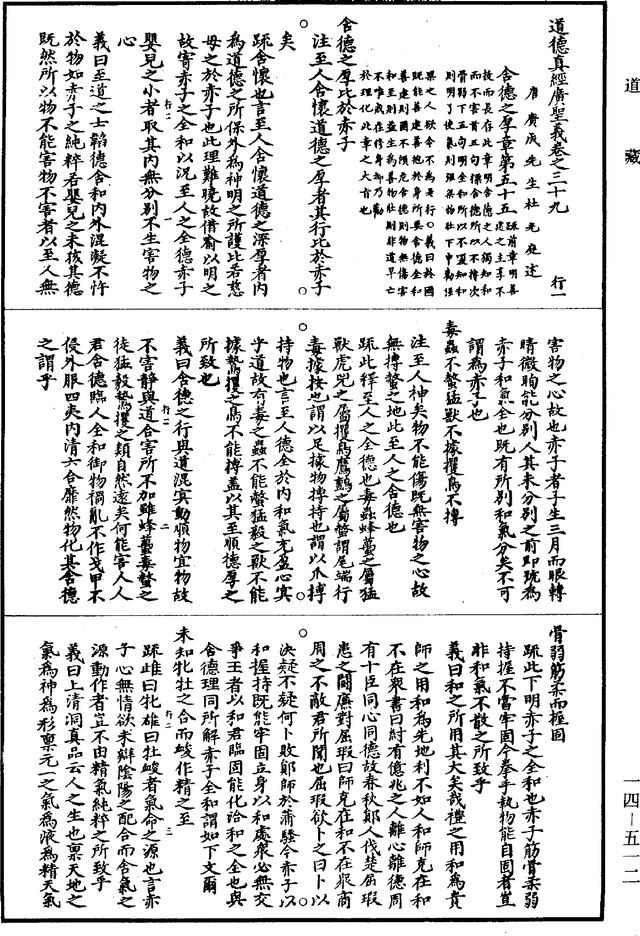 道藏
道德真經廣聖義卷之三十九
行一
唐廣成先生杜光庭述
含德之厚章第五十五
含德之厚比於赤子
注至人含懷道德之厚者其行比於赤子
矣
疏含懷也言至人含懷道德之深厚者內
為道德之所保外為神明之所護比若慈
母之於赤子也此理難曉故借喻以明之
故寄赤子之全和以況至人之全德赤子
嬰兒之小者取其內無分別不生害物之
心
義曰至道之士韜德含和內外混凝不忤
於物如赤子之純粹若嬰兒之未孩其德
既然所以物不能害物不害者以至人無
害物之心故也赤子者子生三月而眼轉
睛微眴能分別人其未分別之前即號為
赤子和氣全也既有所別和氣分矣不可
謂為赤子也
毒蟲不螫猛獸不據攫鳥不搏
注至人神矣物不能傷既無害物之心故
無搏螫之地此至人之含德也
疏此釋至人之全德也毒蟲蜂蠆之屬猛
獸虎兕之屬攫鳥鷹鸇之屬螫謂尾端行
毒據按也謂以足據物搏持也謂以爪搏
持物也言至人德全於內和氣充盈心冥
乎道故有毒之蟲不能螫猛毅之獸不能
據鷙攫之鳥不能搏蓋以其至順德厚之
所致也
義曰含德之行與道混冥動順物宜物故
不害靜與道合害所不加雖蜂蠆毒螫之
徒猛毅鷙攫之類自然遠矣何能害人人
君含德臨人全和御物禍亂不作戈甲不
侵外服四夷內清六合靡然物化其含德
之謂乎
骨弱筋柔而握固
疏此下明赤子之全和也赤子筋骨柔弱
持握不當牢固今拳手執物能自固者豈
非和氣不散之所致乎
義曰和之所用其大矣哉禮之用和為貴
師之用和為先地利不如人和師克在和
不在眾書曰紂有億兆之人離心離德周
有十臣同心同德故春秋鄖人伐楚屈瑕
患之鬬廉對屈瑕曰師克在和不在眾商
周之不敵君所聞也屈瑕欲卜之曰卜以
決疑不疑何卜敗鄖師於蒲騷今赤子以
和握持既能牢固立身以和處眾必無交
爭王者以和君臨固能化洽和之全也與
含德理同所解赤子全和謂如下文爾
未知牝牡之合而峻作精之至
疏雌曰牝雄曰牡峻者氣命之源也言赤
子心無情欲未辯陰陽之配合而含氣之
源動作者豈不由精氣純粹之所致乎
義曰上清洞真品云人之生也稟天地之
氣為神為形稟元一之氣為液為精天氣
一四—五一二